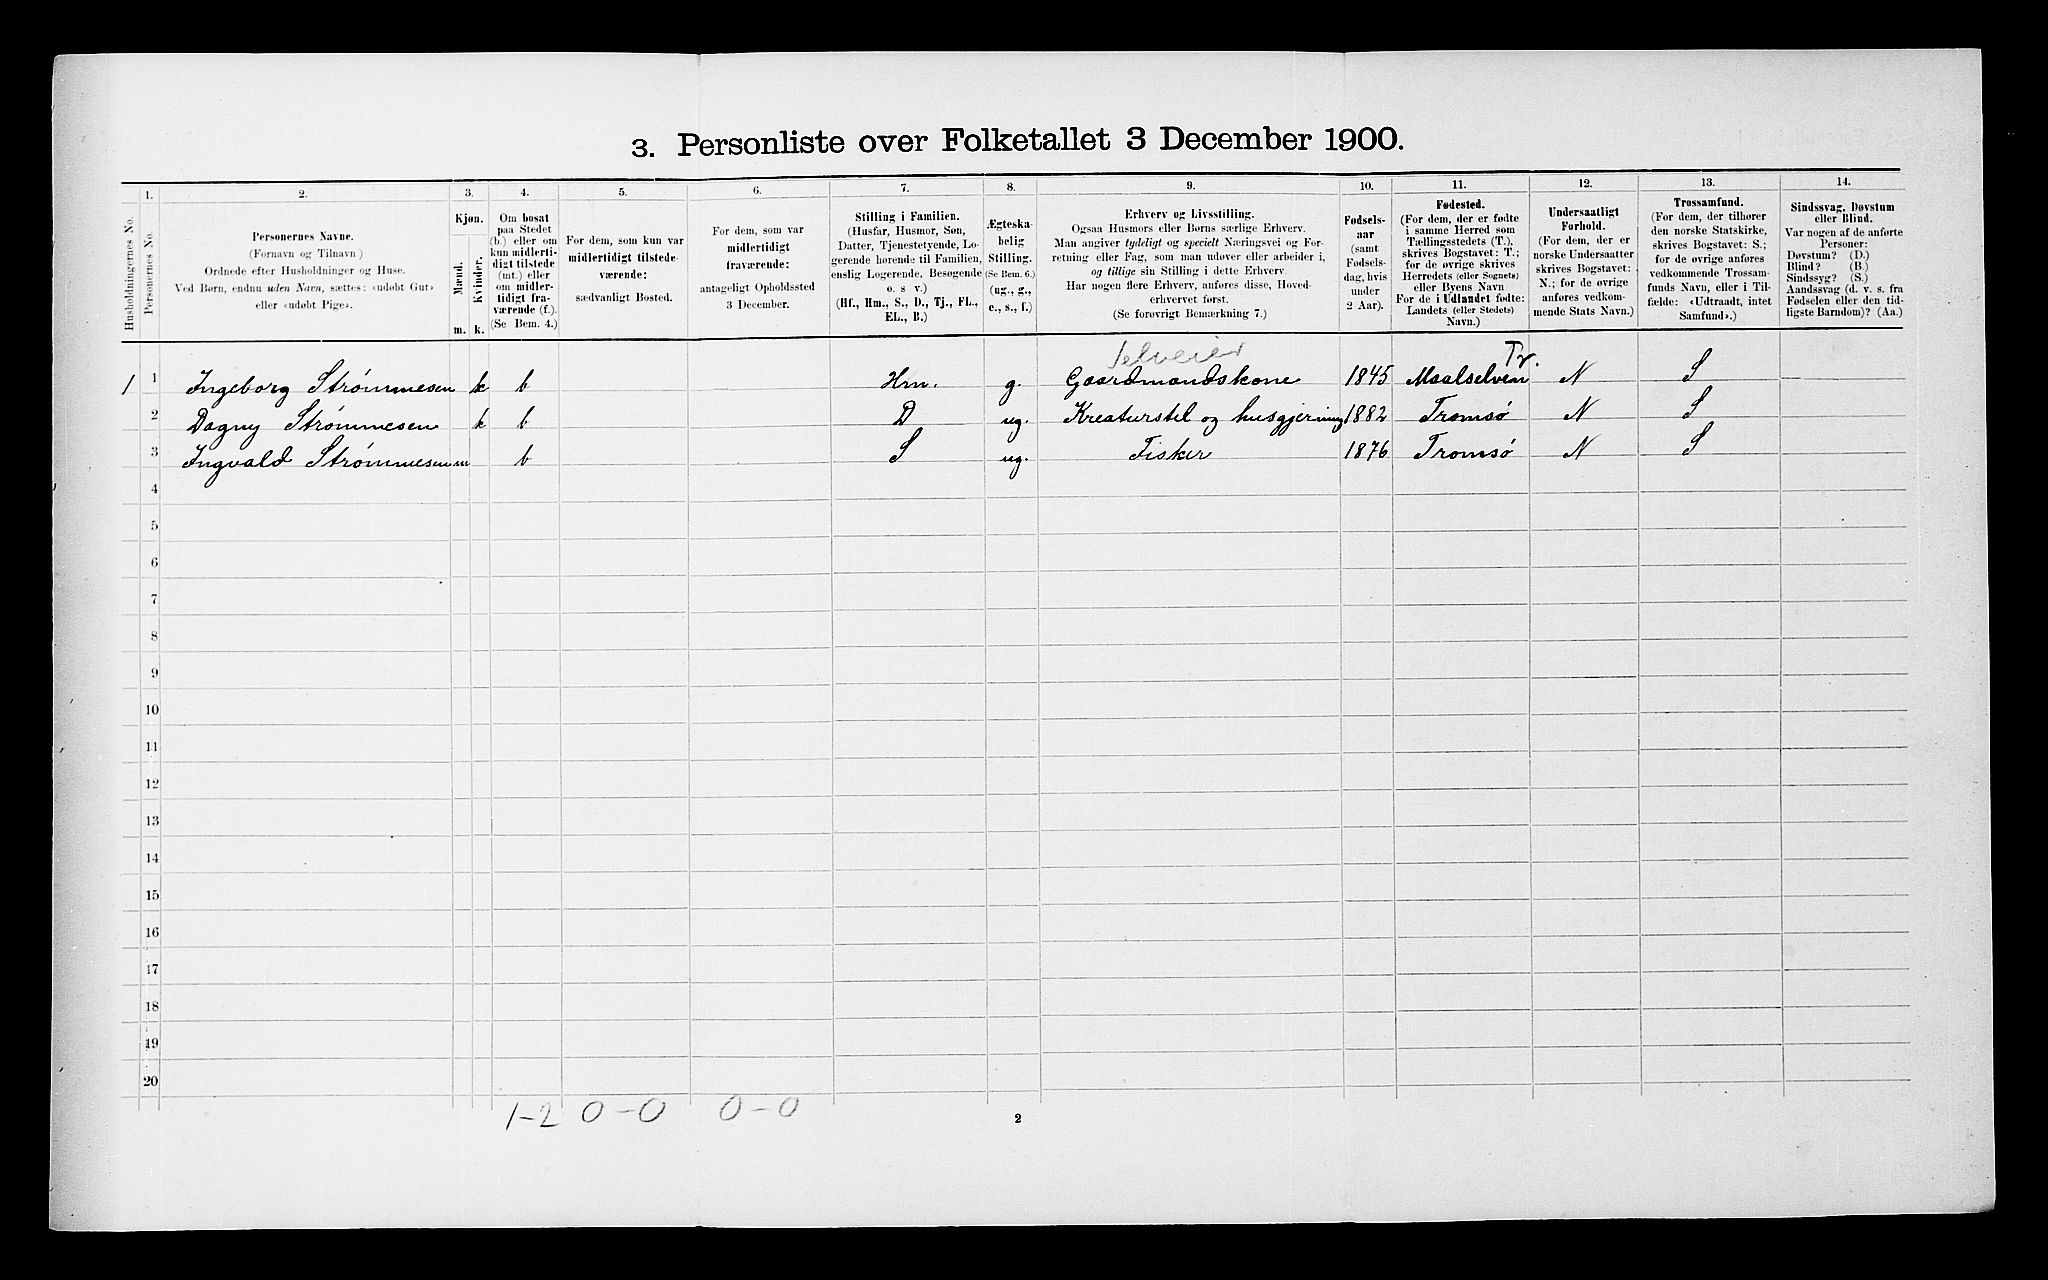 3. Personliste over Folketallet 3 December 1900.
1. 2. 3. 4. 5. 6. 7. 8. 9. 10. 11. 12. 13. 14.
Husholdningernes No.
Personernes No.
Personernes Navne.
(Fornavn og Tilnavn)
Ordnede efter Husholdninger og Huse.
Ved Børn, endnu uden Navn, sættes: «udøbt Gut»
eller «udøbt Pige».
Kjøn.
Mænd.
Kvinder.
m. k.
Om bosat
paa Stedet
(b.) eller om
kun midlerti-
digt tilstede
(mt.) eller
om midler-
tidigt fra-
værende (f.).
(Se Bem. 4.)
For dem, som kun var
midlertidigt tilstede-
værende:
sædvanligt Bosted.
For dem, som var
midlertidigt
fraværende:
antageligt Opholdssted
3 December.
Stilling i Familien.
(Husfar, Husmor, Søn,
Datter, Tjenestetyende, Lo-
gerende hørende til Familien,
enslig Logerende, Besøgende
o. s v.)
(Hf., Hm., S., D., Tj., FL.,
EL., B.)
Ægteska-
belig
Stilling.
(Se Bem. 6.)
(ug., g.,
e., s., f.)
Erhverv og Livsstilling.
Ogsaa Husmors eller Børns særlige Erhverv.
Man angiver tydeligt og specielt Næringsvei og For-
retning eller Fag, som man udøver eller arbeider i,
og tillige sin Stilling i dette Erhverv.
Har nogen flere Erhverv, anføres disse, Hoved-
erhvervet først.
(Se forøvrigt Bemærkning 7.)
Fødsels-
aar
(samt
Fødsels-
dag, hvis
under
2 Aar).
Fødested.
(For dem, der er fødte
i samme Herred som
Tællingsstedets (T.),
skrives Bogstavet: T.;
for de øvrige skrives
Herredets (eller Sognets)
eller Byens Navn
For de i Udlandet fødte:
Landets (eller Stedets)
Navn.)
Undersaatligt
Forhold.
(For dem, der er
norske Undersaatter
skrives Bogstavet:
N.; for de øvrige
anføres vedkom-
mende Stats Navn.)
Trossamfund.
(For dem, der tilhører
den norske Statskirke,
skrives Bogstavet: S.;
for de øvrige anføres
vedkommende Trossam-
funds Navn, eller i Til-
fælde: «Udtraadt, intet
Samfund».)
Sindssvag, Døvstum
eller Blind.
Var nogen af de anførte
Personer:
Døvstum? (D.)
Blind? (B.)
Sindssyg? (S.)
Aandssvag (d. v. s. fra
Fødselen eller den tid-
ligste Barndom)? (Aa.)
Selveier Tr.
1 1 Ingeborg Strømmesen k b Hm. g. Gaardmandskone 1845 Maalselven N S
2 Dagny Strømmesen k b D ug. Kreaturstel og husgjerning 1882 Tromsø N S
3 Ingvald Strømmesen m b S ug. Fisker 1876 Tromsø N S
4
5
6
7
8
9
10
11
12
13
14
15
16
17
18
19
20
1-2 0-0 0-0
2